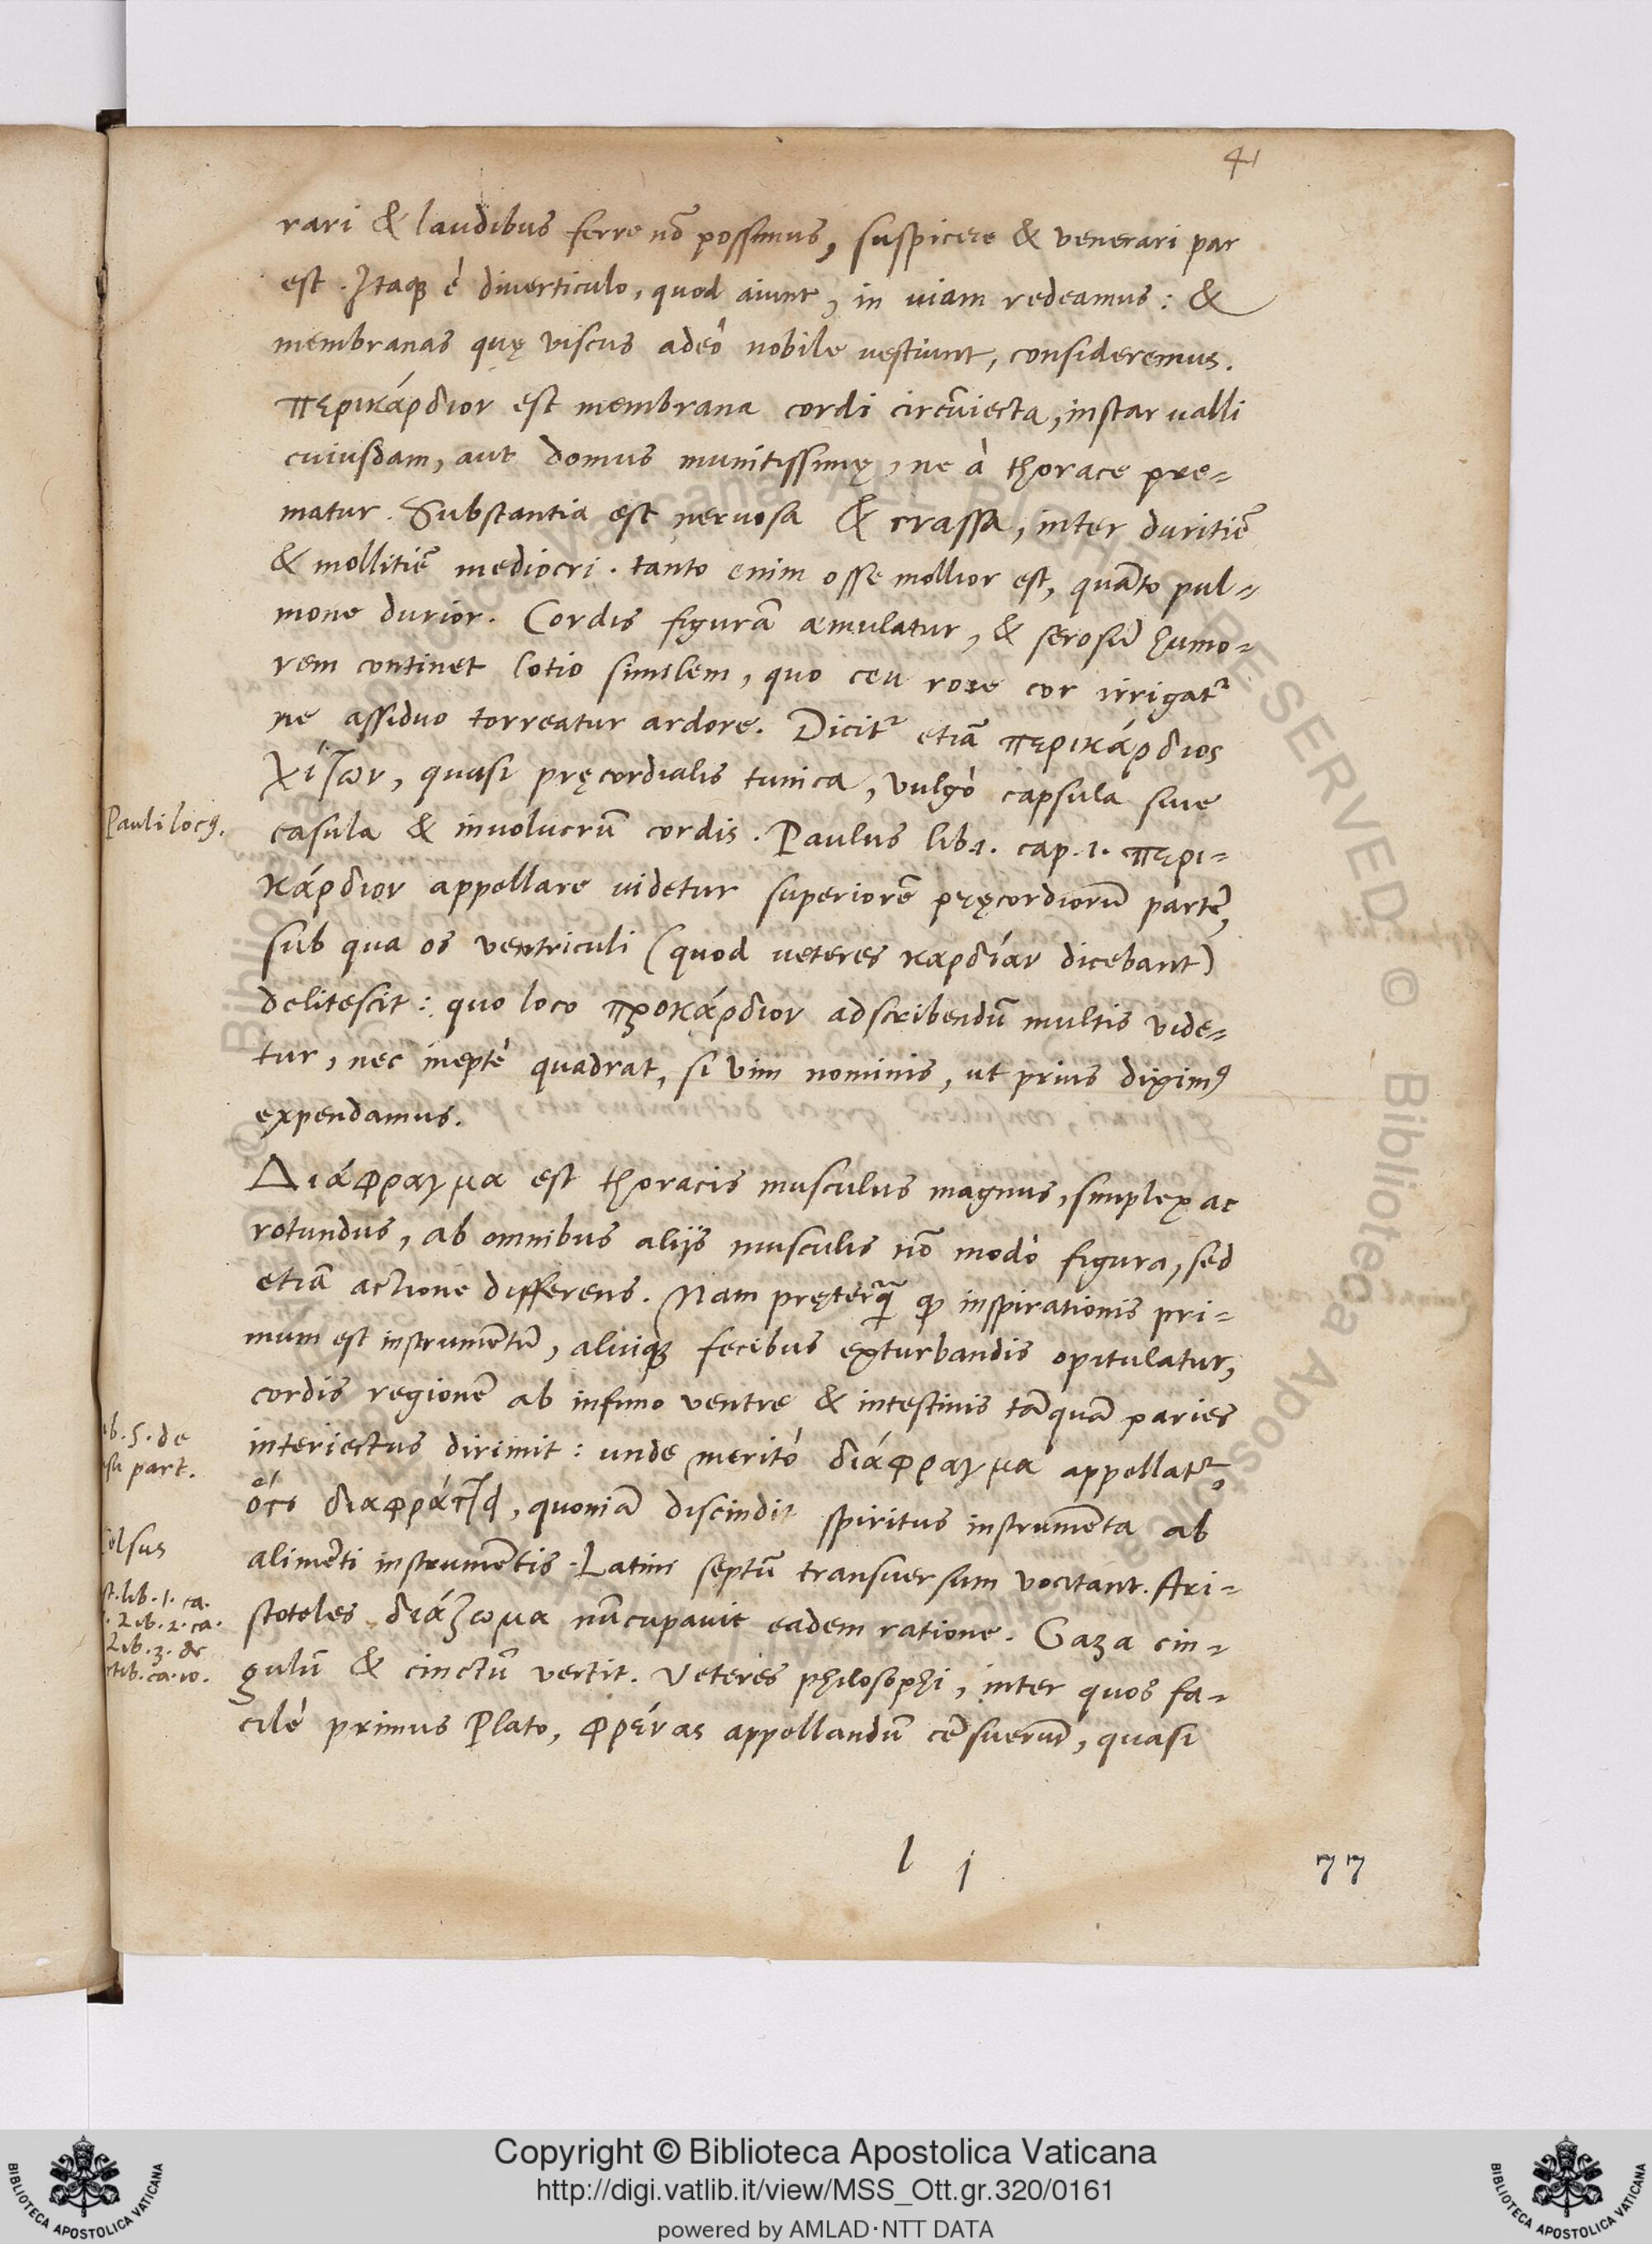 41
rari & laudibus ferre nō possimus, suspicere & venerari par
est. Itaqꝫ è diverticulo, quod aiunt, in uiam redeamus: &
membranas quę viscus adeò nobile uestiunt, consideremus.
περικάρδιον est membrana cordi circūiecta, instar ualli
cuiusdam, aut domus munitissimę, ne à thorace pre-
matur. Substantia est nervosa & crassa, inter duritiē
& mollitiē mediocri. tanto enim osse mollior est, quāto pul-
mone durior. Cordis figurā æmulatur, & serosū humo-
rem continet lotio similem, quo ceu rore cor irrigatʳ
ne assiduo torreatur ardore. Dicitʳ etiā περικάρδιος
χίτων, quasi pręcordialis tunica, vulgò capsula siue
Pauli locꝰ.
casula & involucrū cordis. Paulus lib.1. cap.1. περι-
κάρδιον appellare uidetur superiorē pręcordiorū partē,
sub qua os ventriculi (quod ueteres καρδίαν dicebant)
delitescit: quo loco προκάρδιον adscribendū multis vide-
tur, nec ineptè quadrat, si vim nominis, ut prius diximꝰ
expendamus.
Διάφραγμα est thoracis musculus magnus, simplex ac
rotundus, ab omnibus alijs musculis nō modò figura, sed
etiā actione differens. Nam pręterꝙ̄ ꝙ inspirationis pri-
mum est instrumentū, aluiqꝫ fecibus exturbandis opitulatur,
cordis regionē ab infimo ventre & intestinis tāquā paries
b. 5. de
su part.
interiectus dirimit: unde meritò διάφραγμα appellatʳ,
διαφράτ, quoniā discindit spiritus instrumenta ab
elsus
alimēti instrumētis. Latini septū transuersum vocitant. Ari-
t. lib. 1. ca.
. Lib. 2. ca.
Lib. 3. de
rtib. ca. 10.
stoteles διάζωμα nūcupauit eadem ratione. Gaza cin-
gulū & cinctū vertit. Veteres philosophi, inter quos fa-
cilè primus Plato, φρένας appellandū cēsuerūt, quasi
l j
77
© Biblioteca Apostolica Vaticana ALL RIGHTS RESERVED © Biblioteca Apostolica Vaticana
Copyright © Biblioteca Apostolica Vaticana
http://digi.vatlib.it/view/MSS_Ott.gr.320/0161
powered by AMLAD·NTT DATA
BIBLIOTECA APOSTOLICA VATICANA
BIBLIOTECA APOSTOLICA VATICANA